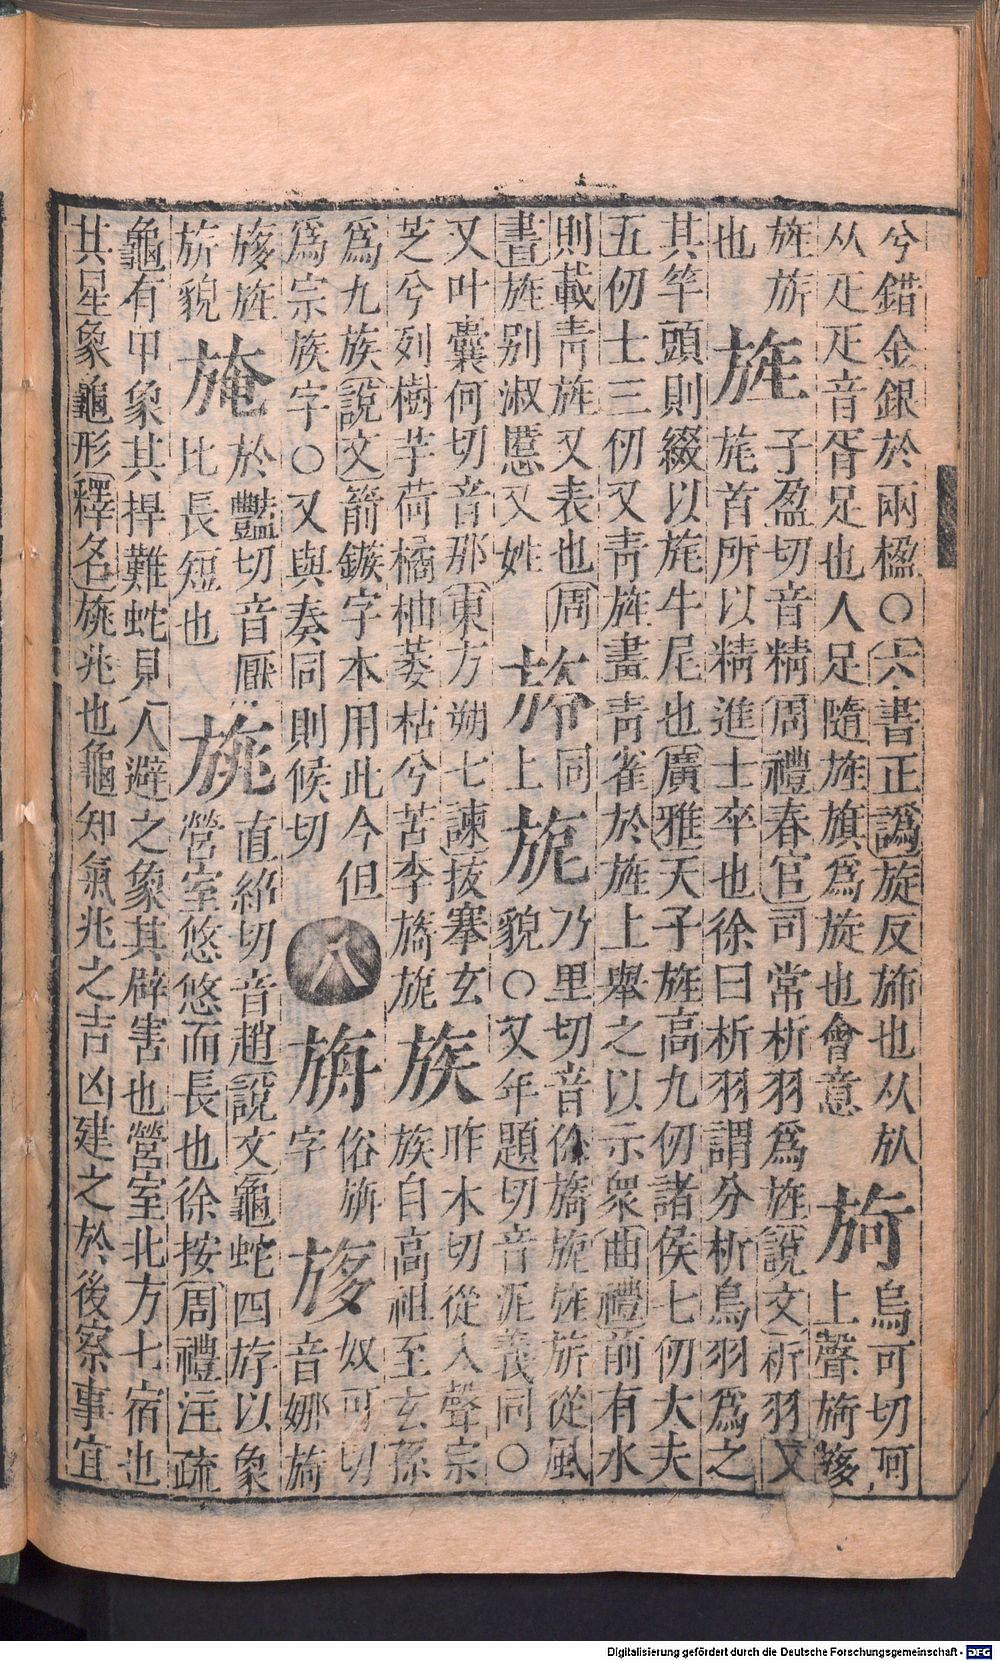 兮錯金銀於兩楹○六書正譌旋反斾也从㫃 烏可切阿
从疋疋音胥足也人足隨旌旗爲旋也會意 旑 上聲旑旑
旌旂 子盈切音精周禮春官司常析羽爲旌說文析羽又
也 旌 旄首所以精進士卒也徐曰析羽謂分析鳥羽爲之
其竿頭則綴以旄牛尾也廣雅天子旌高九仞諸侯七仞大夫
五仞士三仞又靑旌畫靑雀於旌上舉之以示衆曲禮前有水
則載靑旌又表也周 同 乃里切音 旖旎旌旂從風
書旌别淑慝又姓 上 旎 貌○又年題切音泥義同○
又叶囊何切音那東方朔七諫拔搴玄 昨木切從入聲宗
芝兮列樹芋荷橘柚萎枯兮苦李旖旎 族 族自高祖至玄孫
爲九族說文箭鏃字本用此今但 八 俗旃 奴可切
爲宗族字○又與奏同則候切 字 音娜旖
旌 於豔切音厭 直紹切音趙說文龜蛇四斿以象
旂貌 比長短也 旐 營室悠悠而長也徐按周禮注疏
龜有甲象其捍難蛇見人避之象其辟害也營室北方七宿也
其星象龜形釋名旐兆也龜知氣兆之吉凶建之於後察事宜
Digitalisierung gefördert durch die Deutsche Forschungsgemeinschaft - DFG